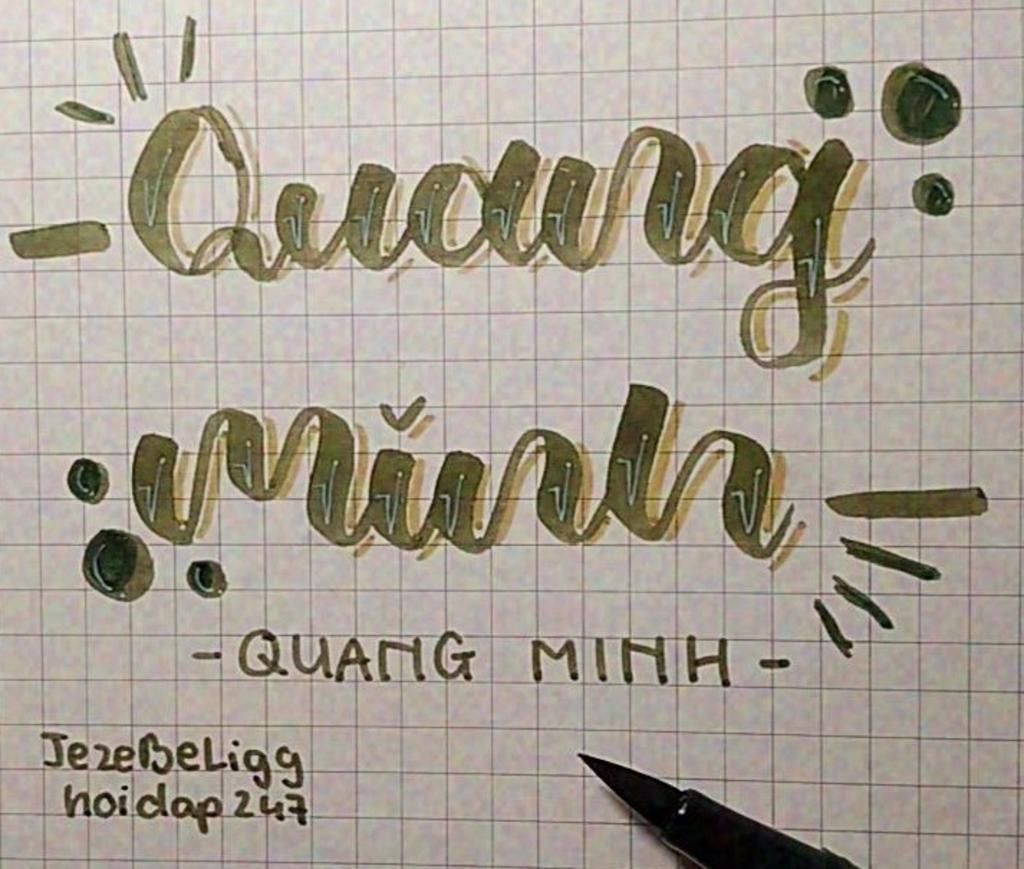 Quang
minh
- QUANG MINH -
JezeBeLigg
hoidap247